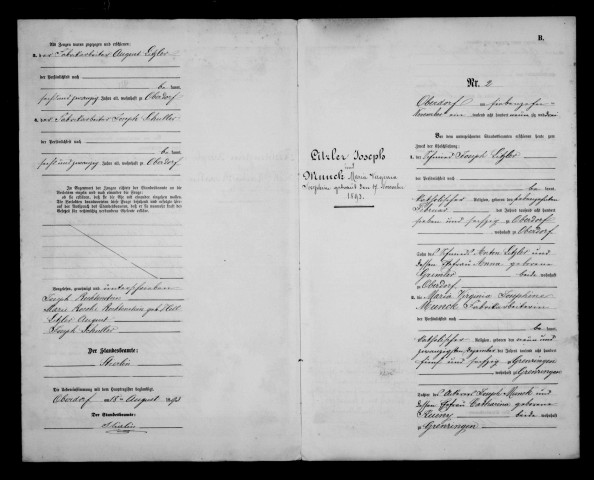 Als Zeugen waren zugezogen und erschienen:
3. der Fabrikarbeiter August Litzler
der Persönlichkeit nach
be kannt,
sechsundzwanzig Jahre alt, wohnhaft zu Oberdorf
4. der Fabrikarbeiter Joseph Schuller
der Persönlichkeit nach
be kannt,
sechsundzwanzig Jahre alt, wohnhaft zu Oberdorf
In Gegenwart der Zeugen richtete der Standesbeamte an die
Verlobten einzeln und nach einander die Frage:
ob sie erklären, daß sie die Ehe mit einander eingehen wollen.
Die Verlobten beantworteten diese Frage bejahend und erfolgte hier-
auf der Ausspruch des Standesbeamten, daß er sie nunmehr kraft des
Gesetzes für rechtmäßig verbundene Eheleute erkläre.
Vorgelesen, genehmigt und unterschrieben
Joseph
Marie
Litzler August
Joseph Schuller
Der Standesbeamte:
Die Uebereinstimmung mit dem Hauptregister beglaubigt
Oberdorf am August 1893
Der Standesbeamte:
Litzler Joseph
und
Munck Maria Virginia
Josephina
1893.
B.
Nr. 2
Oberdorf am siebenzehn-
tausend acht hundert neunzig und drei
Vor dem unterzeichneten Standesbeamten erschienen heute zum
Zweck der Eheschließung:
1. der Schmied Joseph Litzler
der Persönlichkeit nach
be kannt,
katholischer Religion, geboren den siebenzehnten
Februar des Jahres tausend acht hundert
sieben und sechzig zu Oberdorf
, wohnhaft zu Oberdorf
Sohn des Schmied Anton Litzler und
dessen Ehefrau Anna geborene
beide wohnhaft
zu Oberdorf
2. die Maria Virginia Josephina
Munck Fabrikarbeiterin
der Persönlichkeit nach
be kannt,
katholischer Religion, geboren den neun und
zwanzigsten Dezember des Jahres tausend acht hundert
fünf und sechzig zu Grenzingen
, wohnhaft zu Grenzingen
Tochter des Ackerer Joseph Munck und
dessen Ehefrau Catharina geborene
beide wohnhaft
zu Grenzingen